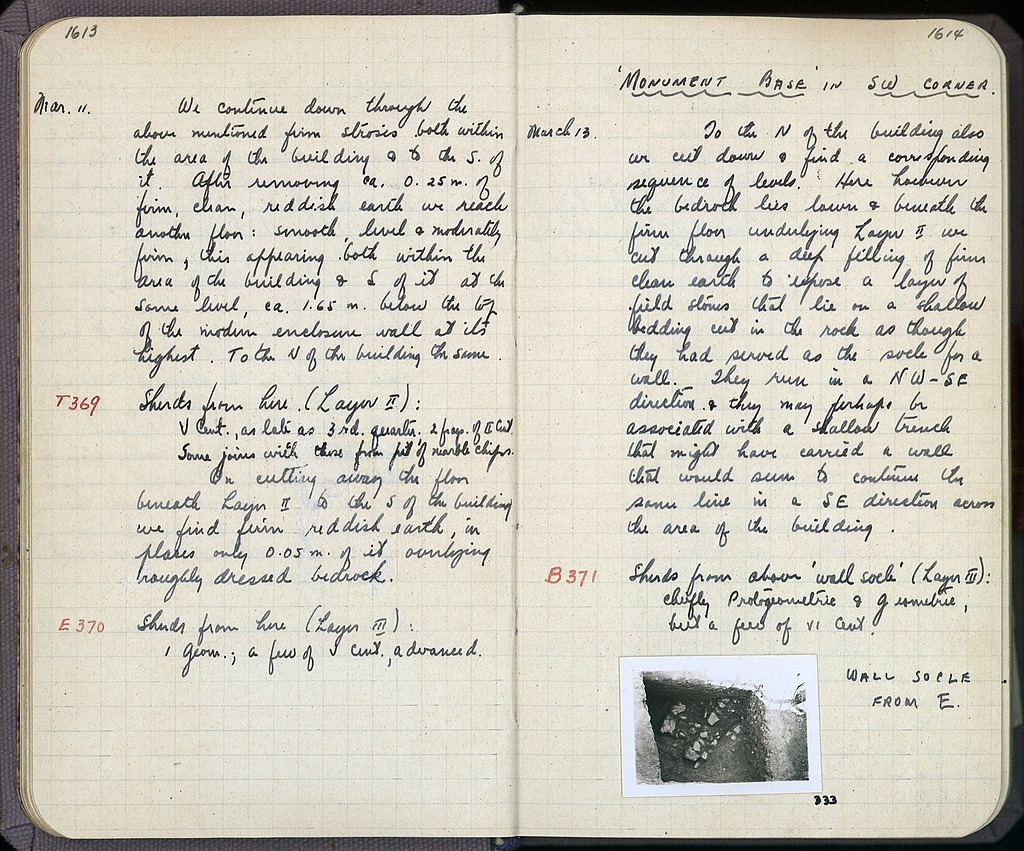 1613
Mar. 11. We continue down through the
above mentioned firm strosis both within
the area of the building & to the S. of
it. After removing ca. 0.25 m. of
firm, clean, reddish earth we reach
another floor: smooth, level & moderately
firm, this appearing both within the
area of the building & S of it at the
same level, ca. 1.65 m. below the top
of the modern enclosure wall at its
highest. To the N of the building the same.
T369 Sherds from here (Layer II):
V Cent., as late as 3rd. quarter. 2 frags. of
Some joins with those from pit of marble chips.
On cutting away the floor
beneath Layer II to the S of the building
we find firm reddish earth, in
places only 0.05 m. of it overlying
roughly dressed bedrock.
E370 Sherds from here (Layer III):
1 Geom.; a few of V cent., advanced.
1614
'MONUMENT BASE' IN SW CORNER.
March 13. To the N of the building also
we cut down & find a corresponding
sequence of levels. Here however
the bedrock lies lower & beneath the
firm floor underlying Layer II we
cut through a deep filling of firm
clean earth to expose a layer of
field stones that lie on a shallow
bedding cut in the rock as though
they had served as the socle for a
wall. They run in a NW-SE
direction & they may perhaps be
associated with a shallow trench
that might have carried a wall
that would seem to continue the
same line in a SE direction across
the area of the building.
B371 Sherds from above 'wall socle' (Layer III):
chiefly Protogeometric & Geometric,
but a few of VI Cent.
WALL SOCLE
FROM E.
333